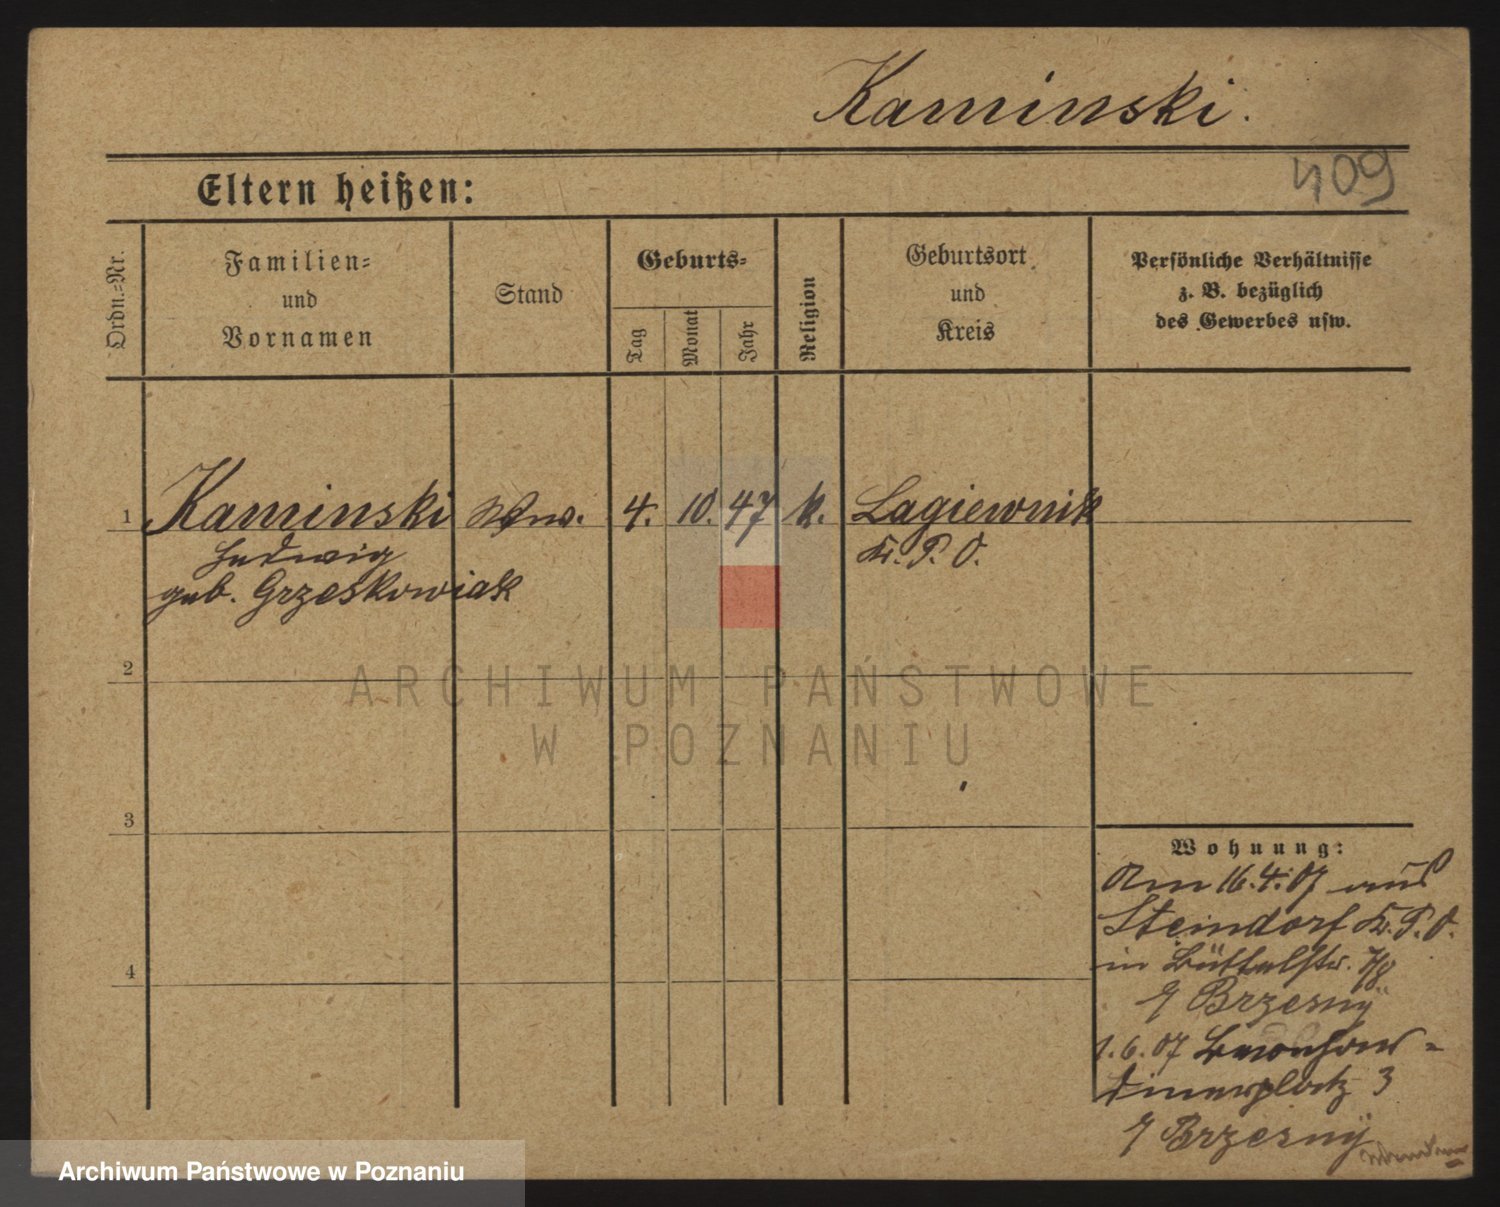 Kaminski.
409
Eltern heißen:
Ordn.-Nr.
Familien-
und
Vornamen
Stand
Geburts-
Tag
Monat
Jahr
Religion
Geburtsort
und
Kreis
Persönliche Verhältnisse
z. B. bezüglich
des Gewerbes usw.
1 Kaminski Ww. 4. 10. 47 k. Lagiewnik
Ludwig Kr. P. O.
geb. Grzeskowiak
2
3
4
ARCHIWUM PAŃSTWOWE
W POZNANIU
Wohnung:
Am 16.4.07 aus
Steindorf Kr. P. O.
in Büttelstr. 7/8
Brzesny
1.6.07 Bernhardinerplatz 3
Brzesny
Archiwum Państwowe w Poznaniu